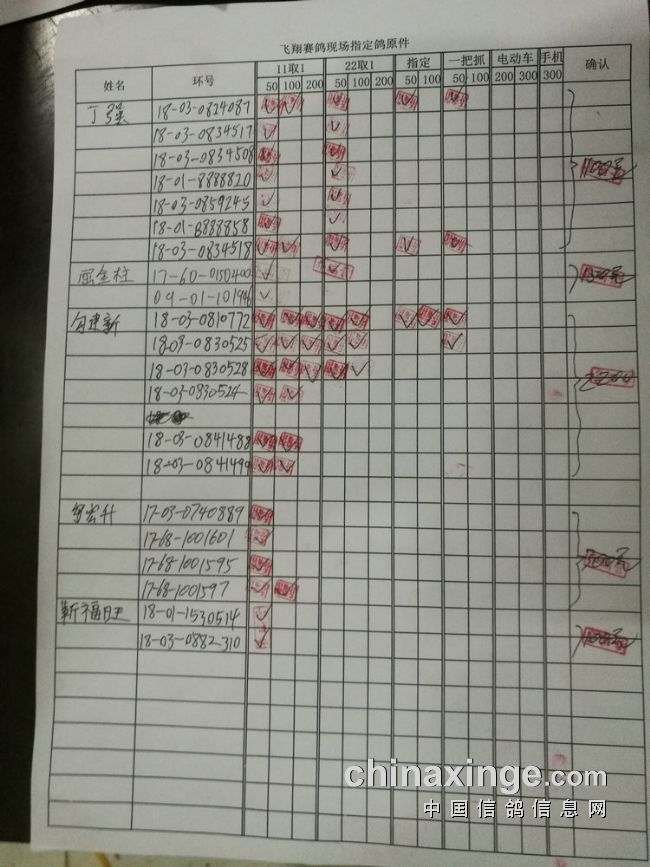 飞翔赛鸽现场指定鸽原件
姓名 环号 11取1 22取1 指定 一把抓 电动车 手机 确认
50 100 200 50 100 200 50 100 50 100 200 300 300
丁强 18-03-0824087
18-03-0834517
18-03-0834508
18-01-8888820
18-03-0859245
18-01-8888858
18-03-0834518
屈金柱 17-60-0150400
09-01-10194
18-03-0810772
18-03-0830525
18-03-0830528
18-03-0830524
18-03-0841488
18-03-0841499
17-03-0740889
1768-1001601
1768-1001595
1768-1001597
靳福旺 18-01-1530514
18-03-0882310
chinaxinge.com
中国信鸽信息网